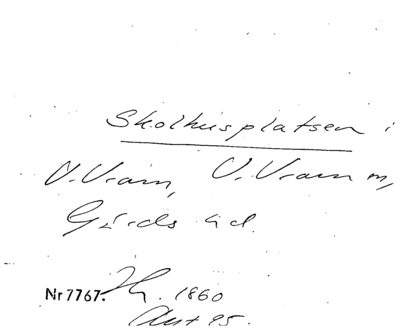 Skolhusplatsen i
V. Vram, V. Vram m,
Gärds hd.
Nr 7767. 1860
Aut 95.